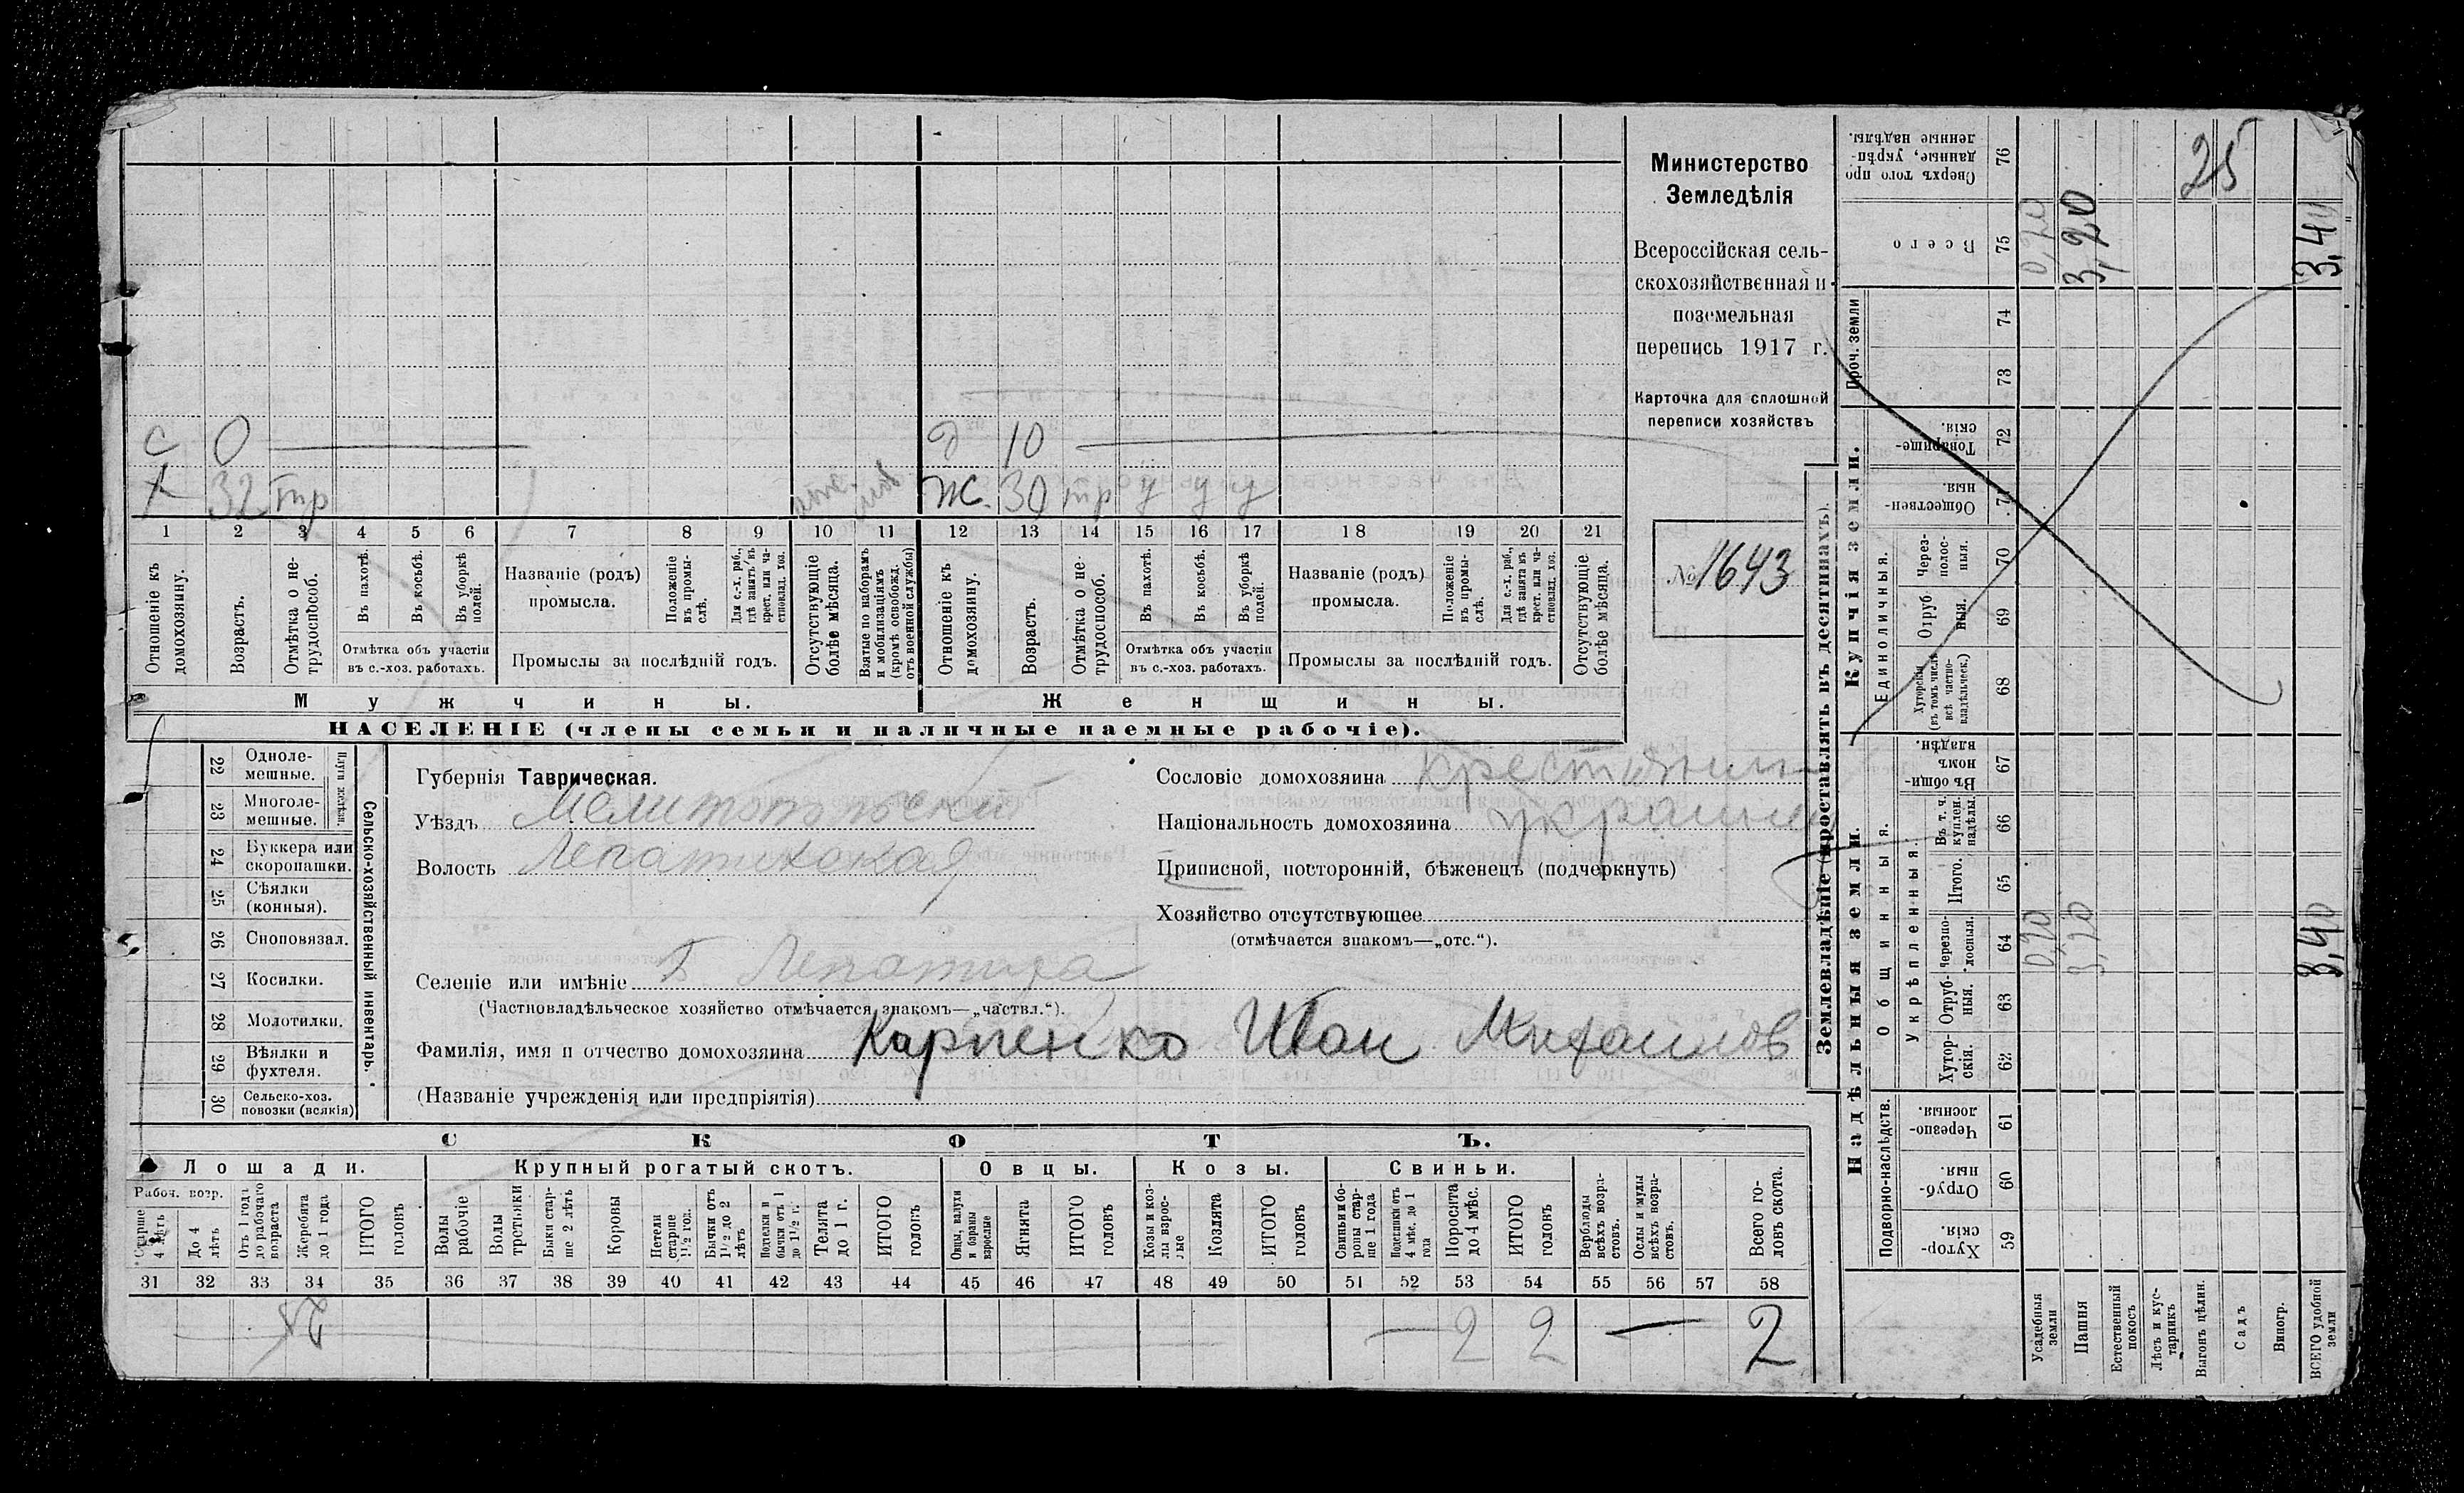 с 0 д 10
х 32 тр Ж. 30 тр у у у
1 2 3 4 5 6 7 8 9 10 11 12 13 14 15 16 17 18 19 20 21
Отношеніе къ домохозяину.
Возрастъ.
Отмѣтка о не-трудоспособ.
Въ пахотѣ.
Въ косьбѣ.
Въ уборкѣ полей.
Отмѣтка объ участіи
въ с.-хоз. работахъ.
Названіе (родъ)
промысла.
Положеніе въ промы-слѣ.
Для с.-х. раб., гдѣ занятъ въ крест. или ча-стновлад. хоз.
Промыслы за послѣдній годъ.
Отсутствующіе болѣе мѣсяца.
Взятые по наборамъ и мобилизаціямъ (кромѣ освобожд. отъ военной службы)
Отношеніе къ домохозяину.
Возрастъ.
Отмѣтка о не-трудоспособ.
Въ пахотѣ.
Въ косьбѣ.
Въ уборкѣ полей.
Отмѣтка объ участіи
въ с.-хоз. работахъ.
Названіе (родъ)
промысла.
Положеніе въ промы-слѣ.
Для с.-х. раб., гдѣ занята въ крест. или ча-стновлад. хоз.
Промыслы за послѣдній годъ.
Отсутствующіе болѣе мѣсяца.
Мужчины.
Женщины.
НАСЕЛЕНІЕ (члены семьи и наличные наемные рабочіе).
Министерство
Земледѣлія
Всероссійская сель-
скохозяйственная и
поземельная
перепись 1917 г.
Карточка для сплошной
переписи хозяйствъ
№ 1643
22 Одноле-
мешные.
23 Многоле-
мешные.
Плуги желѣзн.
24 Буккера или
скоропашки.
25 Сѣялки
(конныя).
26 Сноповязал.
27 Косилки.
28 Молотилки.
29 Вѣялки и
фухтеля.
30 Сельско-хоз.
повозки (всякія)
Сельско-хозяйственный инвентарь.
Губернія Таврическая.
Уѣздъ Мелитопольский
Волость Лепатихская
Селеніе или имѣніе Б Лепатиха
(Частновладѣльческое хозяйство отмѣчается знакомъ—„частвл.“).
Фамилія, имя и отчество домохозяина Карпенко Иван Михаилов
(Названіе учрежденія или предпріятія)
Сословіе домохозяина крестьянин
Національность домохозяина украинец
Приписной, посторонній, бѣженецъ (подчеркнуть)
Хозяйство отсутствующее
(отмѣчается знакомъ—„отс.“).
СКОТЪ.
Лошади.
Крупный рогатый скотъ.
Овцы.
Козы.
Свиньи.
Рабоч. возр.
Старше 4 лѣтъ
До 4 лѣтъ
Отъ 1 года до рабочаго возраста
Жеребята до 1 года
ИТОГО головъ
Волы рабочіе
Волы третьяки
Быки стар-ше 2 лѣтъ
Коровы
Нетели старше 1½ год.
Бычки отъ 1½ до 2 лѣтъ
Подтелки и бычки отъ 1 до 1½ г.
Телята до 1 г.
ИТОГО головъ
Овцы, валухи и бараны взрослые
Ягнята
ИТОГО головъ
Козы и коз-лы взрос-лые
Козлята
ИТОГО головъ
Свиньи и бо-ровы стар-ше 1 года
Подсвинки отъ 4 мѣс. до 1 года
Поросята до 4 мѣс.
ИТОГО головъ
Верблюды всѣхъ возра-стовъ.
Ослы и мулы всѣхъ возра-стовъ.
Всего го-ловъ скота.
31 32 33 34 35 36 37 38 39 40 41 42 43 44 45 46 47 48 49 50 51 52 53 54 55 56 57 58
— 2 2 — 2
Землевладѣніе (проставлять въ десятинахъ).
Надѣльныя земли.
Купчія земли.
Проч. земли
Подворно-наслѣдств.
Общинныя.
Укрѣпленныя.
Единоличныя.
Хутор-скія. 59
Отруб-ныя. 60
Черезпо-лосныя. 61
Хутор-скія. 62
Отруб-ныя. 63
Черезпо-лосныя. 64
Итого. 65
Въ т. ч. куплен. надѣлы. 66
Въ общин-номъ владѣн. 67
Хуторскія (въ томъ числѣ всѣ частно-владѣльческ.) 68
Отруб-ныя. 69
Через-полос-ныя. 70
Обществен-ныя. 71
Товарище-скія. 72
73
74
Всего 75
Сверхъ того про-данные, укрѣп-ленные надѣлы. 76
Усадебныя земли 0,20 0,20
Пашня 3,20 3,20
Естественный покосъ
Лѣсъ и кус-тарникъ
Выгонъ цѣлин. 25
Садъ
Виногр.
ВСЕГО удобной земли 3,40 3,40